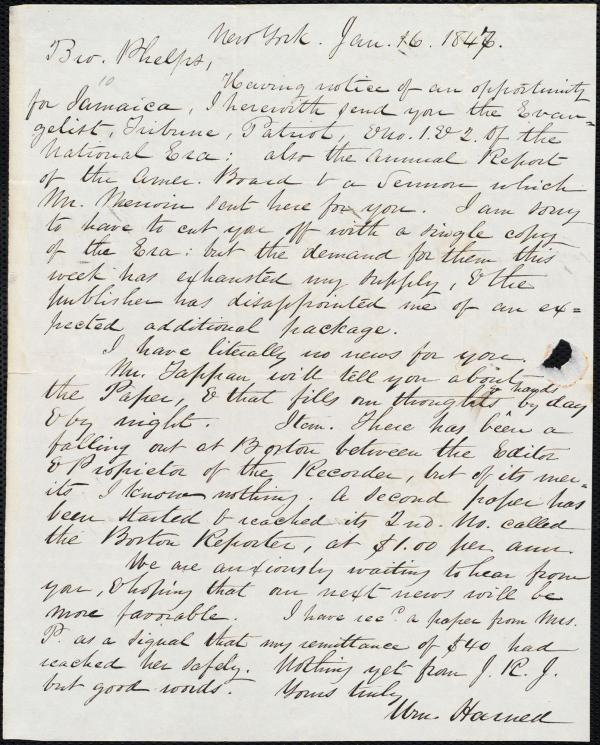 New York. Jan. 16. 1847.
Bro. Phelps,
Having notice of an opportunity
for Jamaica, I herewith send you the Evan=
gelist, Tribune, Patriot, & No. 1 & 2 of the
National Era: also the Annual Report
of the Amer. Board & a Sermon which
Mr. Merriam sent here for you. I am sorry
to have to cut you off with a single copy
of the Era: but the demand for them this
week has exhausted my supply, & the
publisher has disappointed me of an ex=
pected additional package.
I have literally no news for you.
Mr. Tappan will tell you about
the Paper, & that fills our thoughts & hands by day
& by night. Item. There has been a
falling out at Boston between the Editor
& Propietor of the Recorder, but of its mer=
its I know nothing. A second paper has
been started & reached its 2nd. No. called
the Boston Reporter, at $1.00 per ann.
We are anxiously waiting to hear from
you, & hoping that our next news will be
more favorable. I have recd. a paper from Mrs.
P. as a signal that my remittance of $40 had
reached her safely. Nothing yet from J. R. J.
but good words. Yours truly
Wm. Harned